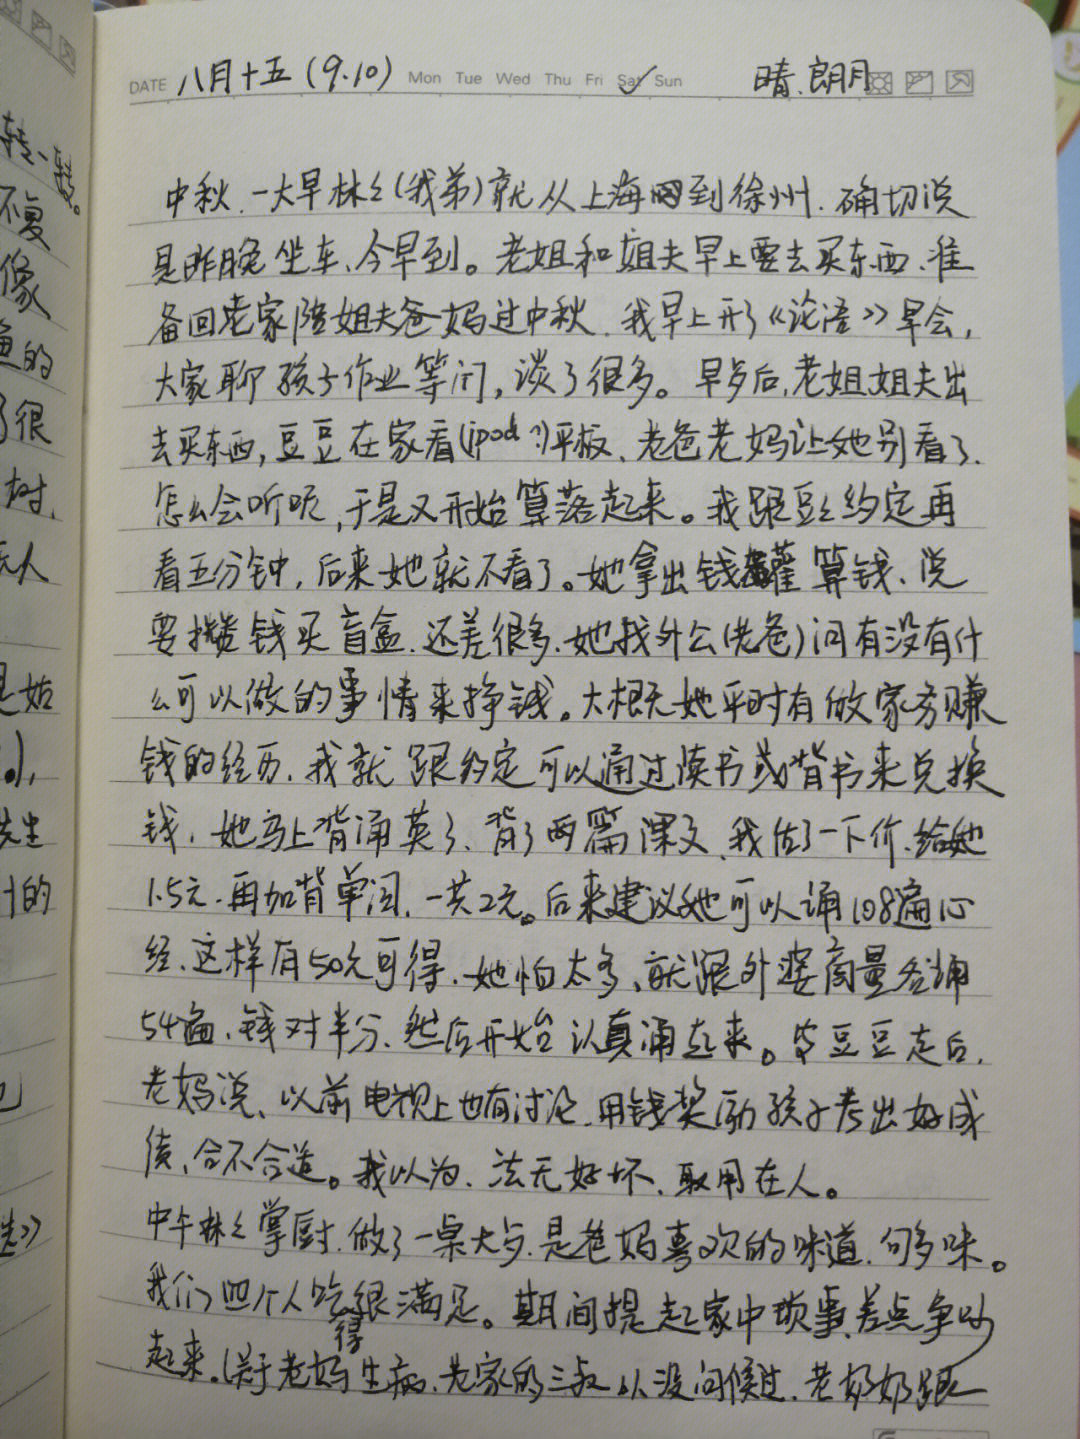 转一转。
不复
像
的
了很
树、
人
是姑
先生
的
DATE 八月十五(9.10) Mon Tue Wed Thu Fri Sat Sun 晴.朗月
中秋.一大早林々(我弟)就从上海回到徐州.确切说
是昨晚坐车、今早到。老姐和姐夫早上要去买东西、准
备回老家陪姐夫爸妈过中秋.我早上开了《论语》早会,
大家聊孩子作业等问,谈了很多。早歺后,老姐姐夫出
去买东西,豆豆在家看(ipod?)平板、老爸老妈让她别看了.
怎么会听呢,于是又开始算落起来。我跟豆々约定再
看五分钟,后来她就不看了。她拿出钱罐算钱、说
要攒钱买盲盒.还差很多.她找外公(老爸)问有没有什
么可以做的事情来挣钱。大概无她平时有做家务赚
钱的经历.我就跟约定可以通过读书或背书来兑换
钱.她马上背诵英了、背了两篇课文.我估了一下价.给她
1.5元.再加背单词.一共2元。后来建议她可以诵108遍心
经、这样有50元可得.她怕太多、就跟外婆商量各诵
54遍、钱对半分.然后开始认真诵起来。等豆豆走后.
老妈说、以前电视上也有讨论.用钱奖励孩子考出好成
绩、合不合适。我以为、法无好坏、取用在人。
中午林々掌厨.做了一桌大歺.是爸妈喜欢的味道.够多味。
我们四个人吃得很满足。期间提起家中琐事、差点争吵
起来。(关于老妈生病、老家的三叔从没问候过、老奶奶跟